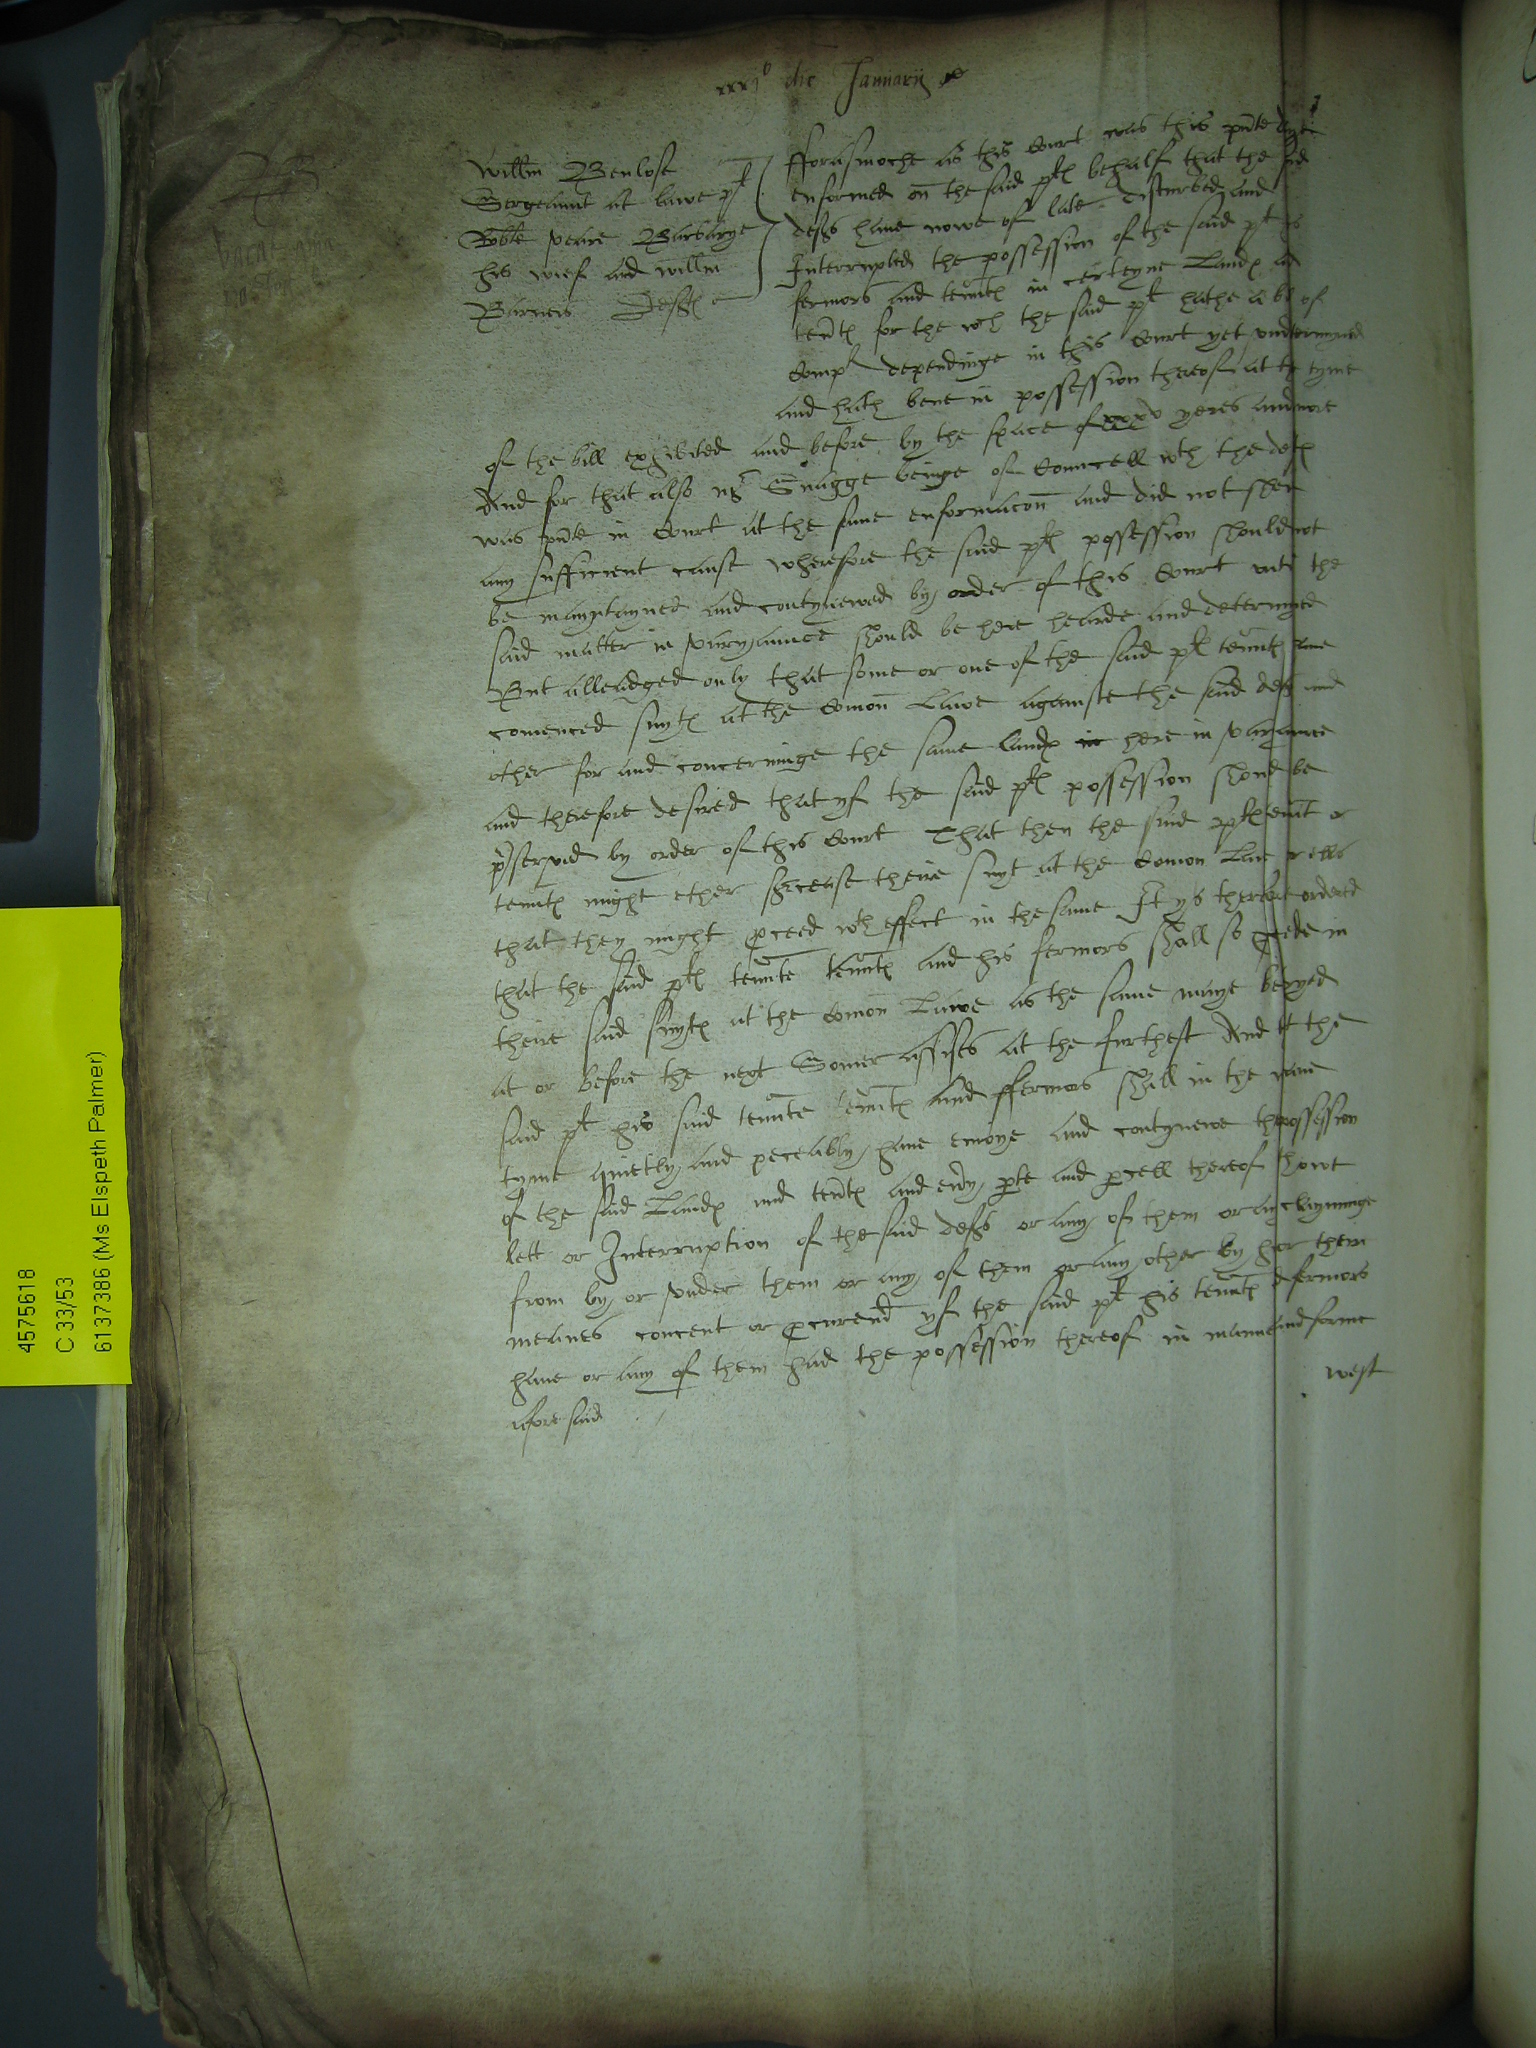 xxxjº die Januarij
Willm Benlose
Sergeaunt at lawe pl
Robte veare Barbarye
his wief and Willm
Barners Defts
fforasmoche as this Court was this pnte daye
enformed on the said pls behalf that the sd
defts have nowe of late disturbed and
Interrupted the possession of the said pl his
fermors and tennts in certeyne Lands and
tents for the wch the said pl hathe a bill of
Compl dependinge in this Court yet undetermyned
and hath bene in possession thereof at the tyme
of the bill exhibited and before by the space of yeres and more
And for that also mr Snagge beinge of Councell wth the defts
was pnte in Court at the same enformacon and did not shew
any sufficient cause wherefore the said pls possession should not
be mayntayned and contynewed by order of this Court until the
said matter in varyaunce should be here hearde and determyned
But alleadged only that some or one of the said pls tennts have
comenced suyts at the Comon Lawe againste the said defts and
other for and concerninge the same lands in here in varyaunce
and therefore desired that yf the said pls possession should be
pserved by order of this Court That then the said pls tennt or
tennts might ether surcease theire suyt at the Comon Law or ells
that they might pceed wth effect in the same It ys therefore ordered
that the said pls tennte tennts and his fermors shall so pcede in
theire said suyts at the Comon Lawe as the same maye be tryed
at or before the next Somer assises at the furthest And that the
said pl his said tennte tennts and ffermors shall in the meane
tyme quietly and peceably have enioye and contynewe the possession
of the said Lands and tents and evry pte and pcell thereof without
lett or Interruption of the said defts or any of them or any clayminge
from by or under them or any of them or any other by his or them
meanes concent or pcuremt yf the said pl his tennts and fermors
have or any of them had the possession thereof in manner and forme
aforesaid
west
4575618
C 33/53
6137386 (Ms Elspeth Palmer)